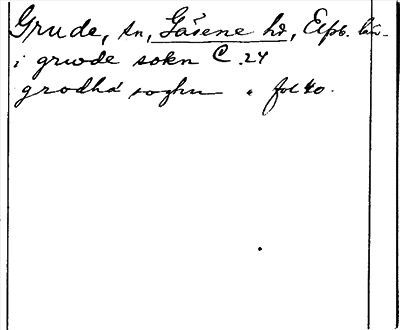 Grude, sn, Gäsene hd, Elfsb. län
i grwde sokn C. 24
grodha soghn " fol 40.